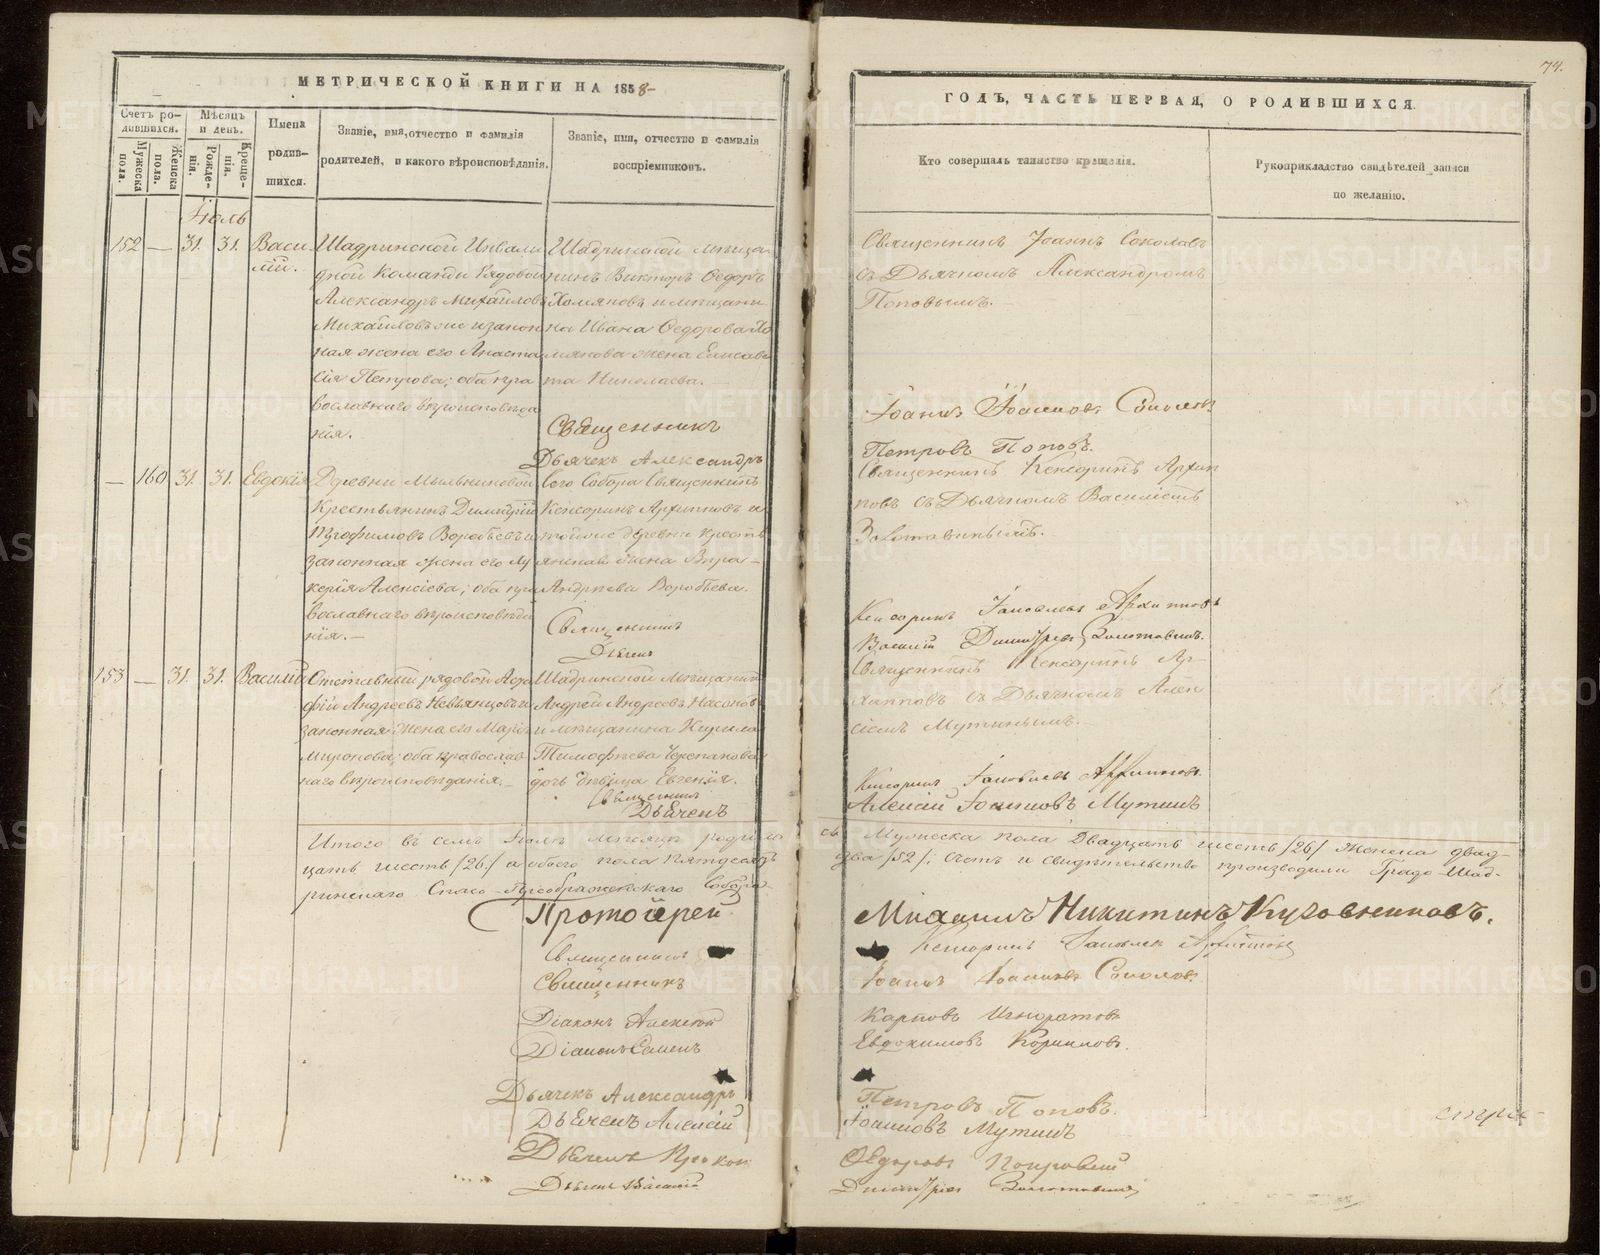 74.
МЕТРИЧЕСКОЙ КНИГИ НА 1858
ГОДЪ, ЧАСТЬ ПЕРВАЯ, О РОДИВШИХСЯ.
Счетъ ро-
дившихся.
Мужеска
пола.
Женска
пола.
Мѣсяцъ
и день.
Рожде-
нія.
Креще-
нія.
Имена
родив-
шихся.
Званіе, имя, отчество и фамилія
родителей, и какого вѣроисповѣданія.
Званіе, имя, отчество и фамилія
воспріемниковъ.
Кто совершалъ таинство крещенія.
Рукоприкладство свидѣтелей записи
по желанію.
Іюль
152 — 31. 31. Васи-
лій.
Шадринской Инвали
дной Команды Рядовой
Александръ Михайловъ
Михайловъ и закон
ная жена его Анаста
сія Петрова; оба пра
вославнаго вѣроисповѣда
нія.
Шадринской мѣща
нинъ Викторъ Ѳедоръ
Холяповъ и мѣщани
на Ивана Ѳедорова Хо
жена Елисаве
та Николаева. —
Священникъ
Дьячекъ Александръ
Священникъ Іоаннъ Соколовъ
съ Дьячкомъ Александромъ
Поповымъ. —
Іоаннъ Іоанновъ Соколовъ
Петровъ Поповъ.
— 160 31. 31. Евдокія
Деревни Мыльниковой
Крестьянинъ Димитрій
Трофимовъ Воробьевъ и
законная жена его Лу
керія Алексіева; оба пра
вославнаго вѣроисповѣда
нія. —
Сего Собора Священникъ
Кенсоринъ Архиповъ и
тойже деревни кресть
жена Вѣра
Андреева Воробьева.
Священникъ
Дьячекъ
Священникъ Кенсоринъ Архип
повъ съ Дьячкомъ Василіемъ
Золотавинымъ. —
Кенсоринъ Іаковлевъ Архиповъ
Василій Димитріевъ Золотавинъ.
153 — 31. 31. Василій
Отставный рядовой
Андреевъ Невьянцовъ и
законная жена его Марія
Миронова; оба православ
наго вѣроисповѣданія. —
Шадринской мѣщанин
Андрей Андреевъ Насонов
и мѣщанина Кирила
Тимофѣева Черепанова
дочь дѣвица Евгенія.
Священникъ
Дьячекъ
Священникъ Кенсоринъ Ар-
хиповъ съ Дьячкомъ Алек
сіемъ Мутинымъ. —
Кенсоринъ Іаковлевъ Архиповъ.
Алексій Іоанновъ Мутинъ
Итого въ семъ Іюлѣ мѣсяцѣ родило сь Мужеска пола двадцать шесть /26/ Женска двад-
цать шесть /26/ а обоего пола пятьдесятъ два /52/. Счетъ и свидѣтельство производили Градо-Шад-
ринскаго Спасо-Преображенскаго Собора
Протоіерей Михаилъ Никитинъ
Священникъ Кенсоринъ Іаковлевъ Архиповъ
Священникъ Іоаннъ Іоанновъ Соколовъ
Діаконъ Алексій Карповъ
Діаконъ Евдокимовъ Корниловъ.
Дьячекъ Александръ Петровъ Поповъ.
Дьячекъ Алексій Іоанновъ Мутинъ
Дьячекъ Ѳедоровъ
Дьячекъ Василій Димитріевъ Золотавинъ